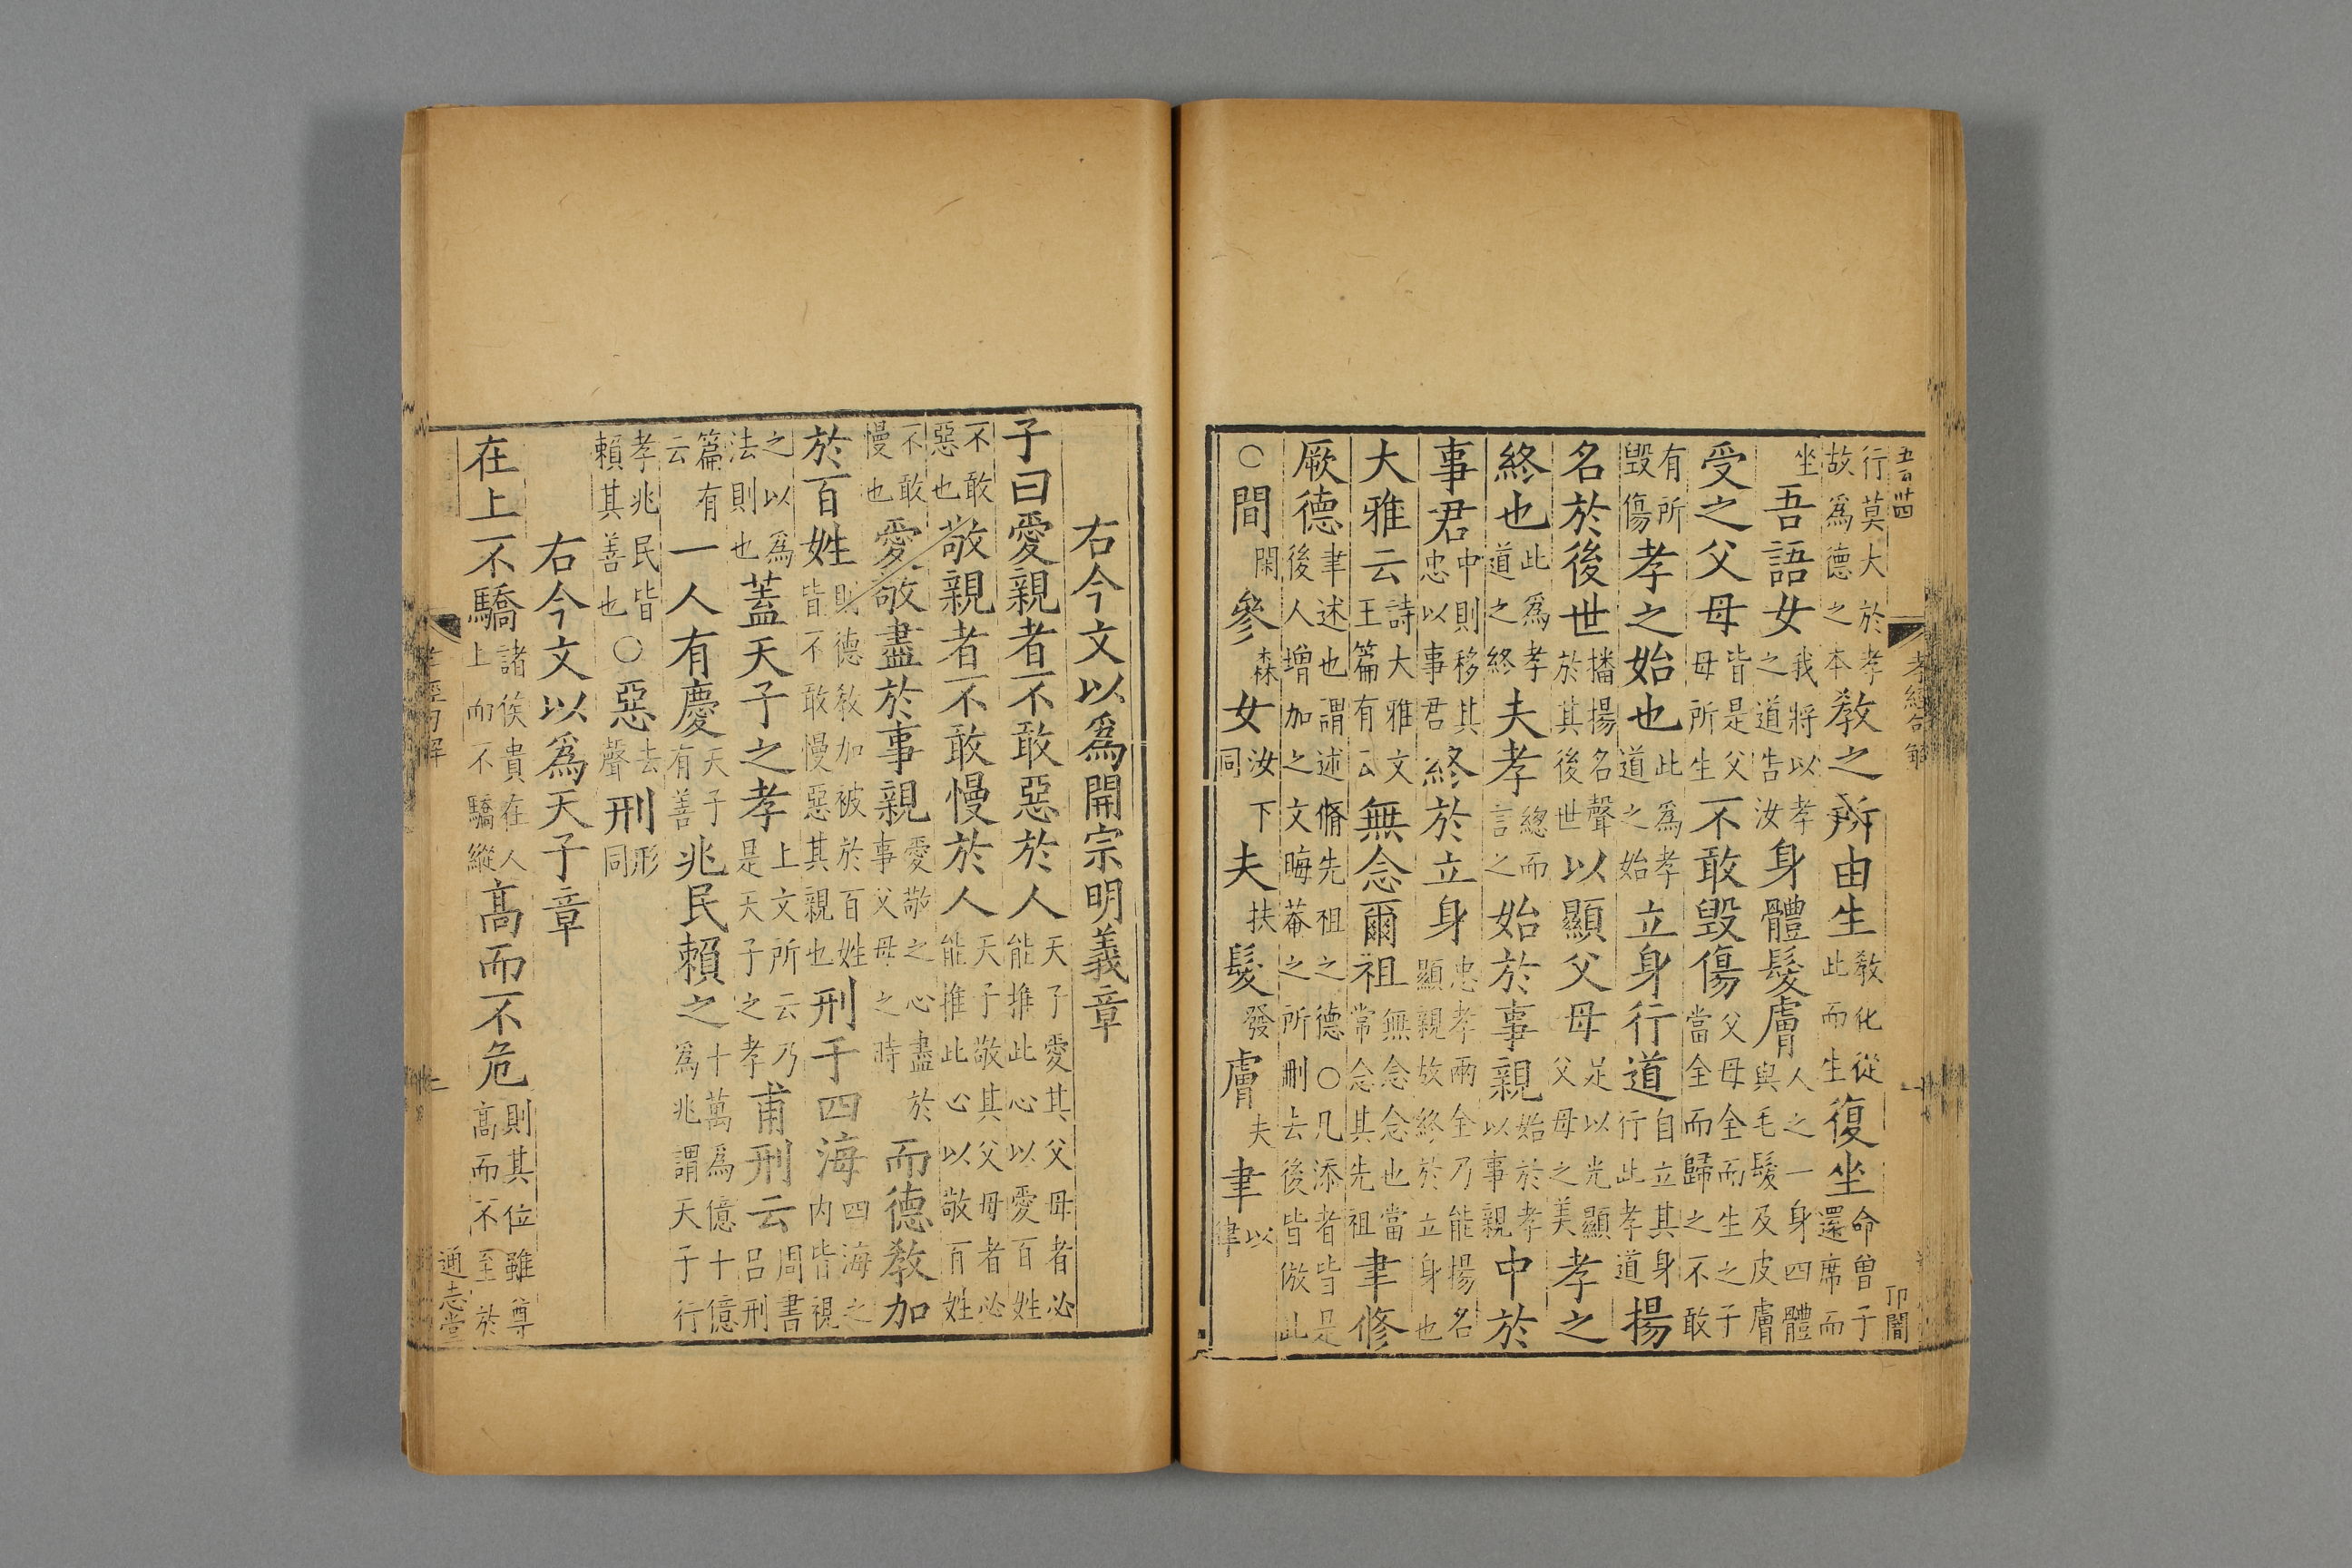 五百廿四
孝經句解
一
行莫大於孝故爲德之本教之所由生教化從此而生復坐命曾子還席而
坐吾語女我將以孝之道告汝身體髮膚人之一身四體與毛髮及皮膚
受之父母皆是父母所生不敢毀傷父母全而生之子當全而歸之不敢
有所毀傷孝之始也此爲孝道之始立身行道自立其身行此孝道揚
名於後世播揚名聲於其後世以顯父母足以光顯父母之美孝之
終也此爲孝道之終夫孝總而言之始於事親始於孝以事親中於
事君中則移其忠以事君終於立身忠孝兩全乃能揚名顯親故終於立身也
大雅云詩大雅文王篇有云無念爾祖無念念也當常念其先祖聿修
厥德聿述也謂述脩先祖之德○凡添者皆是後人增加之文晦菴之所刪去後皆倣此
○間閑參森女汝同下夫扶髮發膚夫聿以律
右今文以爲開宗明義章
子曰愛親者不敢惡於人天子愛其父母者必能推此心以愛百姓
不敢惡也敬親者不敢慢於人天子敬其父母者必能推此心以敬百姓
不敢慢也愛敬盡於事親愛敬之心盡於事父母之時而德教加
於百姓則德教加被於百姓皆不敢慢惡其親也刑于四海四海之内皆視
之以爲法則也蓋天子之孝上文所云乃是天子之孝甫刑云周書呂刑
篇有云一人有慶天子有善兆民賴之十萬爲億十億爲兆謂天子行
孝兆民皆賴其善也○惡去聲刑形同
右今文以爲天子章
在上不驕諸侯貴在人上而不驕縱高而不危則其位雖尊高而不至於
孝經句解
二
通志堂